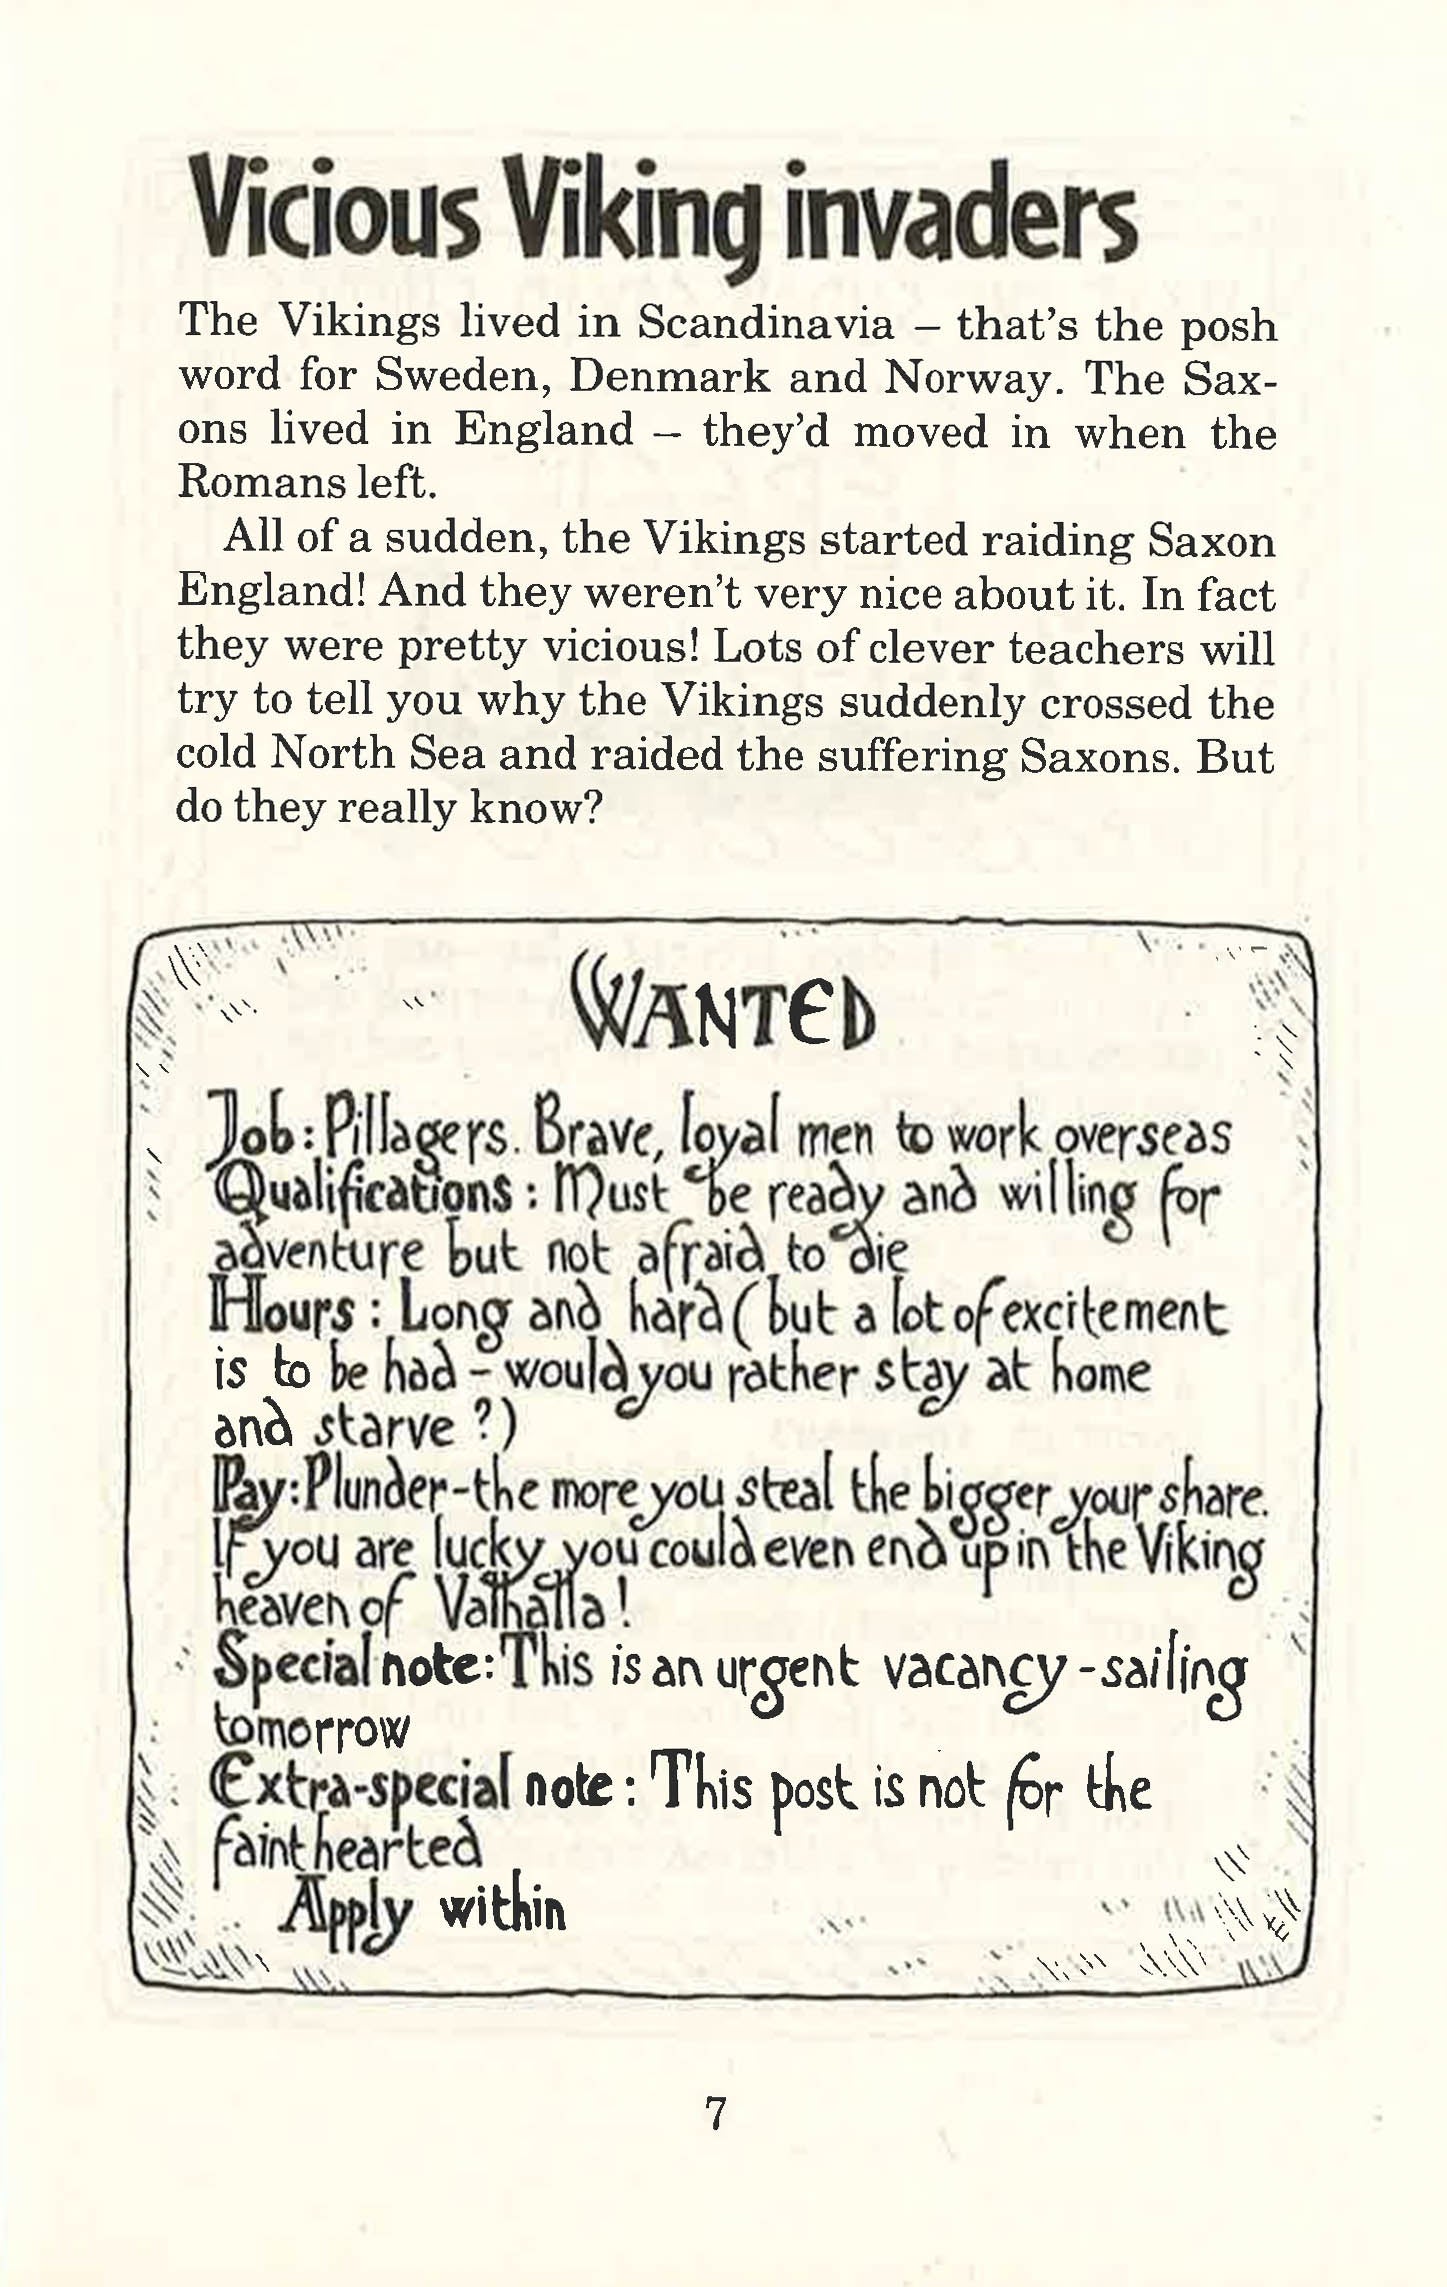 Vicious Viking invaders
The Vikings lived in Scandinavia – that's the posh
word for Sweden, Denmark and Norway. The Sax-
ons lived in England – they'd moved in when the
Romans left.
All of a sudden, the Vikings started raiding Saxon
England! And they weren't very nice about it. In fact
they were pretty vicious! Lots of clever teachers will
try to tell you why the Vikings suddenly crossed the
cold North Sea and raided the suffering Saxons. But
do they really know?
WANTED
Job: Pillagers. Brave, loyal men to work overseas
Qualifications: Must be ready and willing for
adventure but not afraid to die
Hours: Long and hard (but a lot of excitement
is to be had - would you rather stay at home
and starve?)
Pay: Plunder - the more you steal the bigger your share.
If you are lucky you could even end up in the Viking
heaven of Valhalla!
Special note: This is an urgent vacancy - sailing
tomorrow
Extra-special note: This post is not for the
fainthearted
Apply within
7